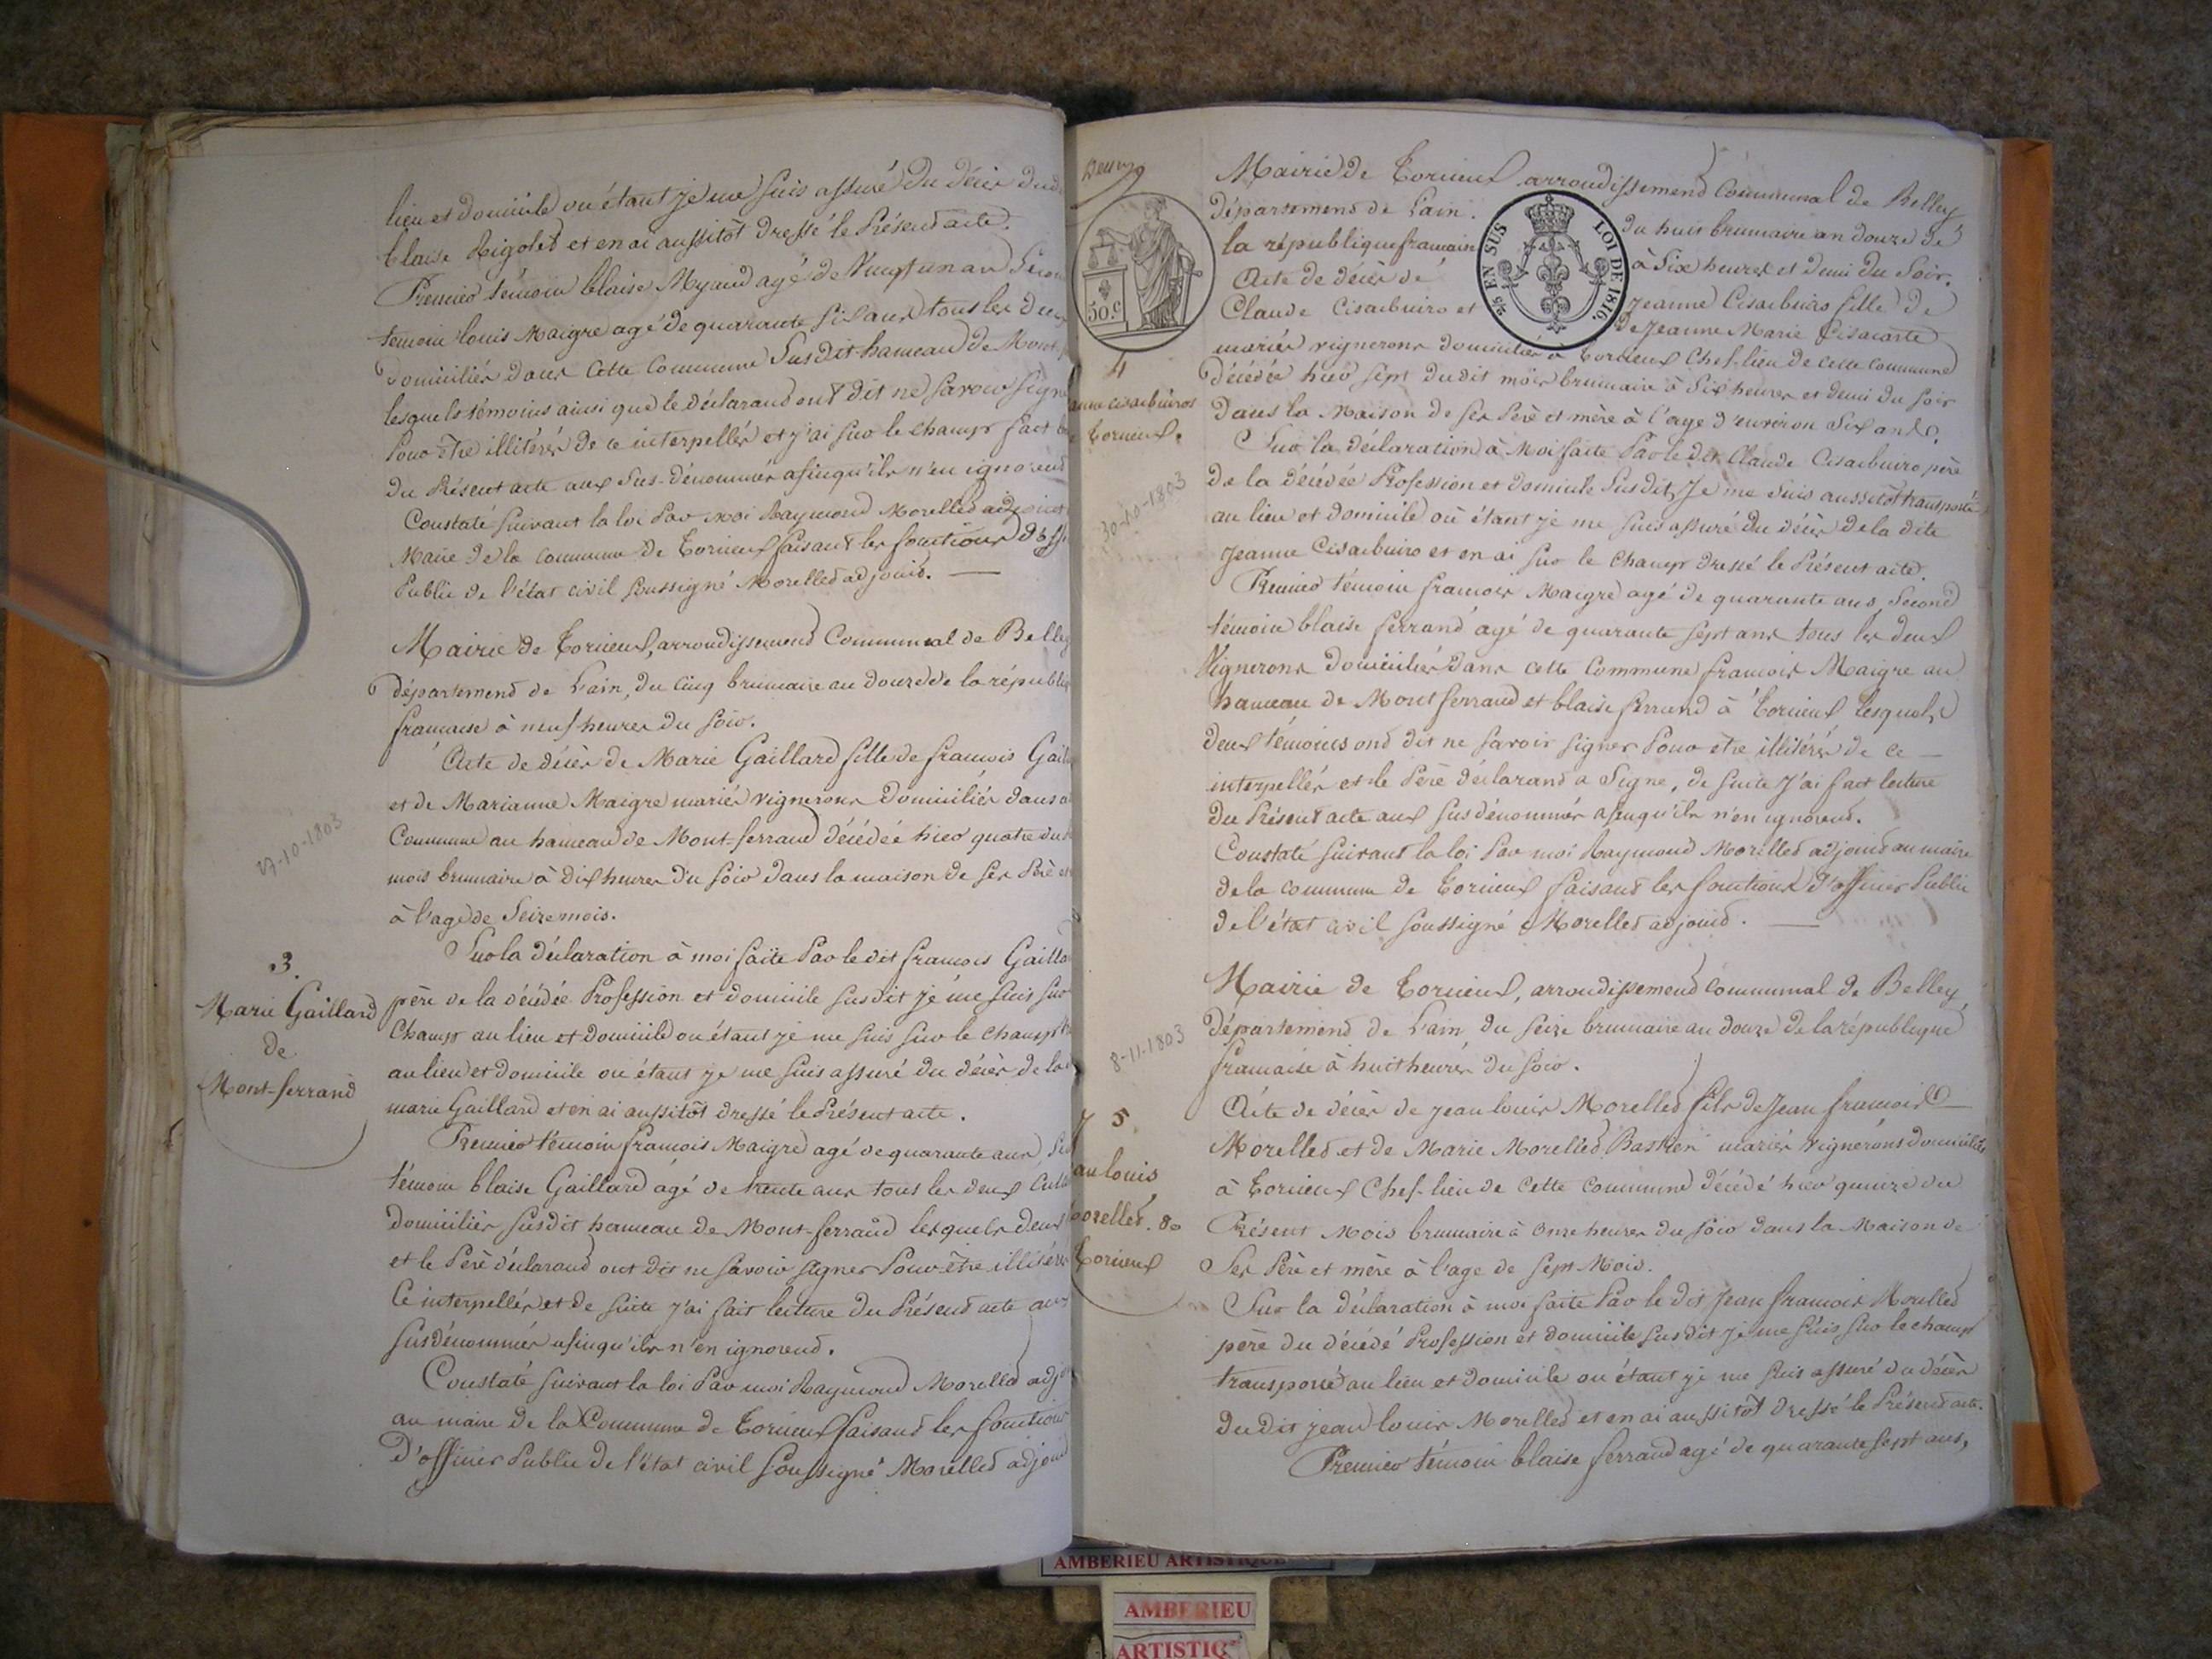 lieu et domicile ou étant je me suis assuré du décès dud
blaise Rigolet et en ai aussitôt dressé le Présent acte.
Premier témoin blaise Myand agé de Vingt un an Secon
temoin louis Maigre agé de quarante six ans tous les deux
domiciliés dans Cette Commune Susdit hameau de Mont-f
lesquels témoins ainsi que le déclarant ont dit ne savoir signe
Pour être illitérés de ce interpellés et j'ai sur le champs fait
du Présent acte aux Sus-dénommés afinqu'ils n'en ignorend
Constaté suivant la loi Par moi Raymond Morellet adjoint
Maire de la commune de Torcieux faisant les fonctions d'offi
Public de l'état civil soussigné Morellet adjoint.
Mairie de Torcieux, arrondissement Communal de Belley
département de l'ain, du cinq brumaire an douze de la républiq
francaise à neuf heures du soir.
Acte de décès de Marie Gaillard fille de francois Gail
et de Marianne Maigre mariés vignerons domiciliés dans
Commune au hameau de Mont-ferrand décédée hier quatre du
mois brumaire à dix heures du soir dans la maison de ses Père et
à l'age de Seize mois.
27-10-1803
3.
Marie Gaillard
de
Mont-ferrand
Sur la déclaration à moi faite Par le dit francois Gailla
père de la décédée Profession et domicile susdit je me suis sur
Champs au lieu et domicile ou étant je me suis sur le champs
au lieu et domicile ou étant je me suis assuré du décès de la
marie Gaillard et en ai aussitôt dressé le Présent acte.
Premier témoin francois Maigre agé de quarante ans
témoin blaise Gaillard agé de trente ans tous les deux Cult
domiciliés susdit hameau de Mont-ferrand lesquels deux
et le Père déclarant ont dit ne savoir signer Pour être illitérés
Ce interpellés et de suite j'ai fait lecture du Présent acte aux
susdénommés afinqu'ils n'en ignorend.
Constaté suivant la loi Par moi Raymond Morellet adjo
au maire de la Commune de Torcieux faisant les fonctions
D'officier Public de l'état civil soussigné Morellet adjoint
Mairie de Torcieux arrondissement Communal de Belley
département de l'ain. du huit brumaire an douze de
la république francaise à Six heures et demi du Soir.
Acte de décès de Jeanne Cisarbuiro fille de
Claude Cisarbuiro et de Jeanne Marie
mariés vignerons domiciliés à Torcieux Chef-lieu de cette commune
décédée hier sept dudit mois brumaire à Six heures et demi du soir
dans la Maison de ses Père et mère à l'age d'environ Six ans.
50.c
25 EN SUS LOI DE 1816.
4
anne cisarbuiros
Torcieux.
30-10-1803
Sur la déclaration à Moi faite Par le dit Claude Cisarbuiro père
de la décédée Profession et domicile Susdit, Je me suis aussitôt transporté
au lieu et domicile où étant je me suis assuré du décès de la dite
Jeanne Cisarbuiro et en ai sur le champs dressé le Présent acte.
Premier témoin francois Maigre agé de quarante ans, Second
témoin blaise ferrand agé de quarante sept ans tous les deux
Vignerons domiciliés dans cette Commune francois Maigre au
hameau de Mont ferrand et blaise ferrand à Torcieux lesquels
deux témoins ond dit ne savoir signer Pour etre illitérés de ce
interpellés et le Père déclarand a Signe, de suite J'ai fait lecture
du Présent acte aux susdénommés afinqu'ils n'en ignorend.
Constaté suivant la loi Par moi Raymond Morellet adjoind au maire
de la commune de Torcieux faisant les fonctions d'officier Public
de l'état civil soussigné Morellet adjoind.
Mairie de Torcieux, arrondissement communal de Belley,
département de l'ain du seize brumaire an douze de la république
francaise à huit heures du soir.
8-11-1803
5.
an louis
orelled. de
Torcieux
Acte de décès de jean louis Morelled fils de Jean francois
Morelled et de Marie Morelled Bastien mariés vignerons domiciliés
à Torcieux Chef-lieu de Cette commune décédé hier quinze du
Présent Mois brumaire à Onze heures du soir dans la Maison de
Ses Père et mère à l'age de sept Mois.
Sur la déclaration à moi faite Par le dit Jean francois Morelled
père du décédé Profession et domicile susdit je me suis sur le champs
transporté au lieu et domicile ou étant je me suis assuré du décès
du dit jean louis Morelled et en ai aussitôt dressé le Présend acte.
Premier témoin blaise ferrand agé de quarante sept ans,
AMBERIEU ARTISTIQUE
AMBERIEU
ARTISTIQ